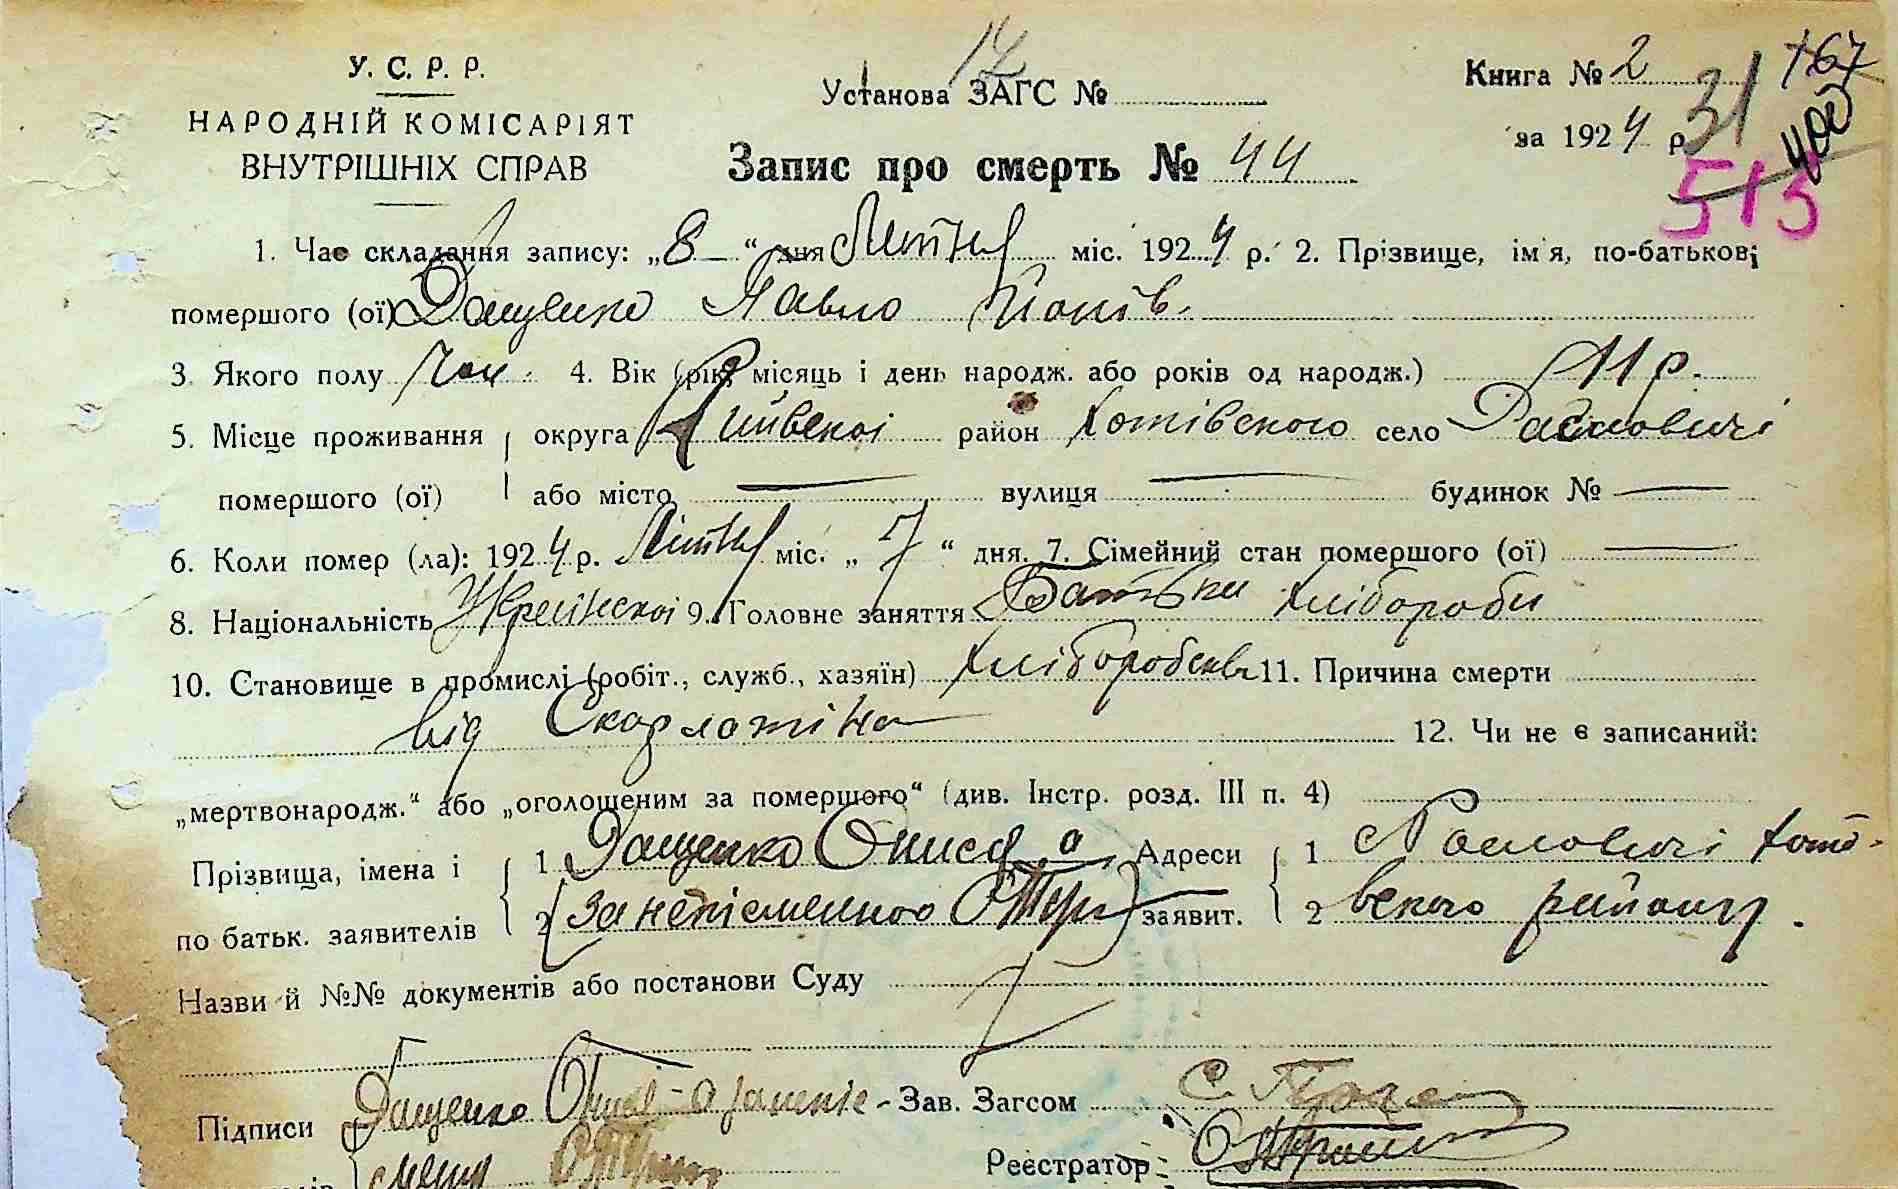 У. С. Р. Р.
НАРОДНІЙ КОМІСАРІЯТ
ВНУТРІШНІХ СПРАВ
Установа ЗАГС №
Запис про смерть № 44
Книга № 2
за 1924 р.
31
167
400
513
1. Час складання запису: „8“ дня Лютня міс. 1924 р. 2. Прізвище, ім'я, по-батькові
помершого (ої) Дащенко Павло
3. Якого полу Чол. 4. Вік (рік, місяць і день народж. або років од народж.) 11 р.
5. Місце проживання округа Київської район Хотівского село
помершого (ої) або місто — вулиця — будинок № —
6. Коли помер (ла): 1924 р. Лютня міс. „7“ дня. 7. Сімейний стан помершого (ої) —
8. Національність 9. Головне заняття Батьки Хлібороби
10. Становище в промислі (робіт., служб., хазяїн) 11. Причина смерти
від Скарлатіна 12. Чи не є записаний:
„мертвонародж.“ або „оголошеним за помершого“ (див. Інстр. розд. III п. 4)
Прізвища, імена і 1 Дащенко Адреси 1 Хоті-
по батьк. заявителів 2 заявит. 2 вского району.
Назви й №№ документів або постанови Суду
Підписи Дащенко Зав. Загсом
Реєстратор